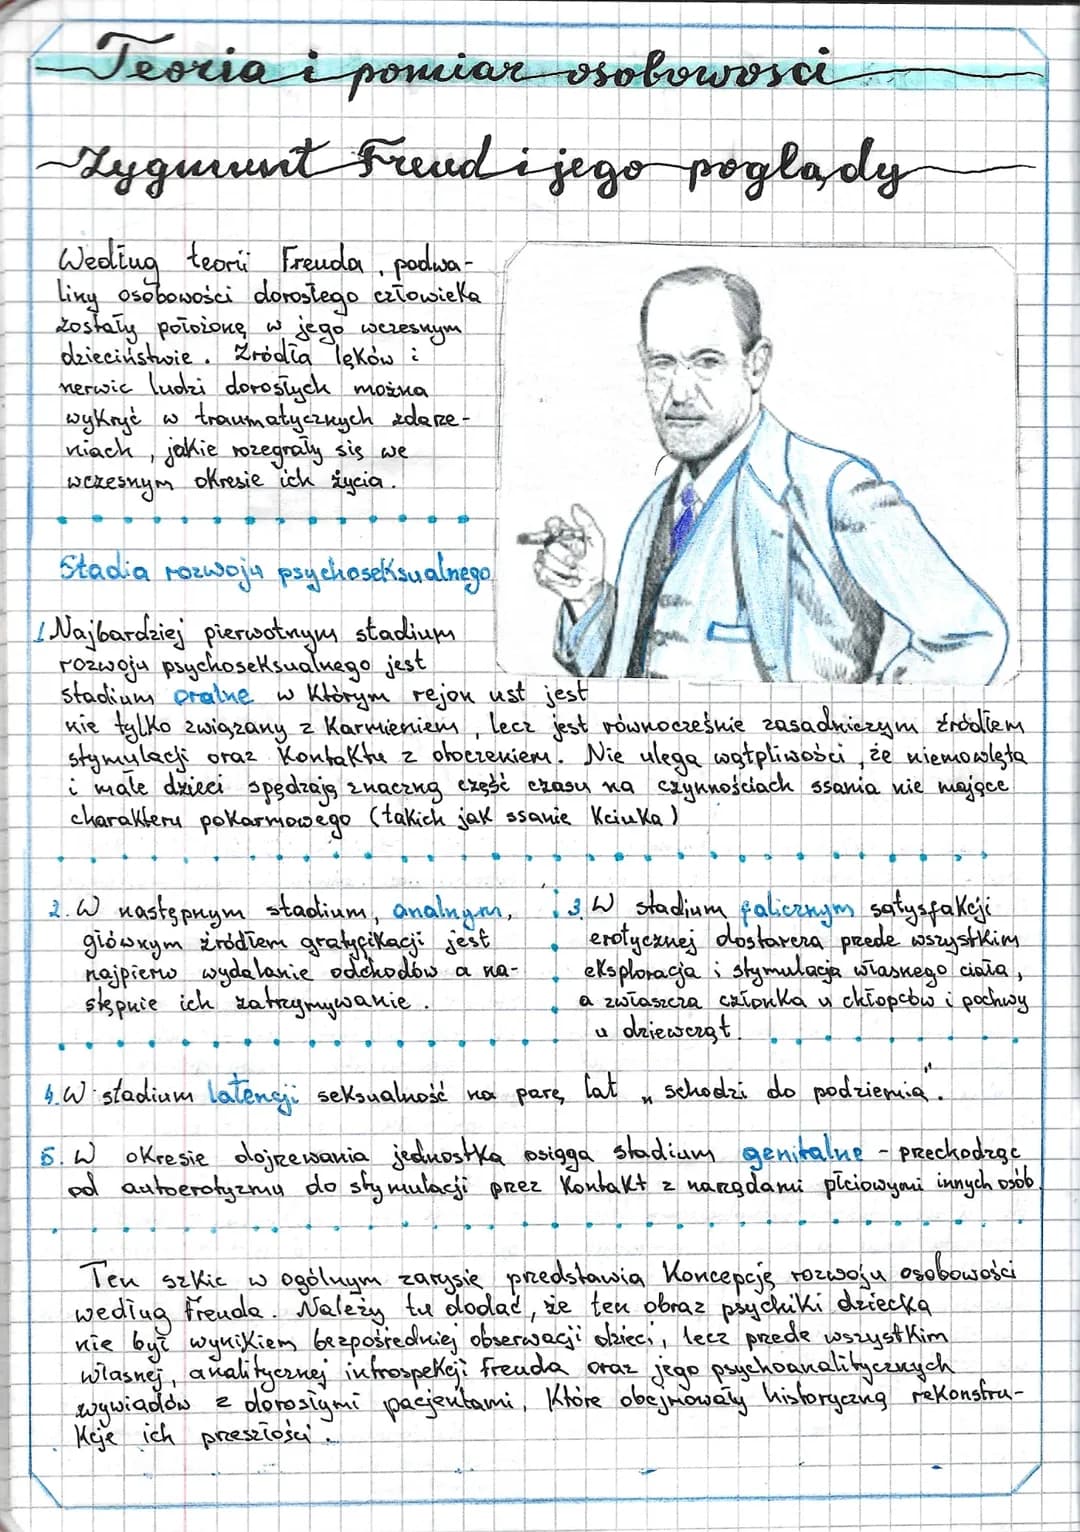 Teoria i pomiar osobowości
Zygmunt Freud i jego poglądy
Według teorii Freuda, podwa-
liny osobowości dorosłego człowieka
zostały położone w jego wczesnym
dzieciństwie. Źródła lęków i
nerwic ludzi dorosłych można
wykryć w traumatycznych zdarze-
niach, jakie rozegrały się we
wczesnym okresie ich życia.
Stadia rozwoju psychoseksualnego
1. Najbardziej pierwotnym stadium
rozwoju psychoseksualnego jest
stadium oralne w którym rejon ust jest
nie tylko związany z karmieniem, lecz jest równocześnie zasadniczym źródłem
stymulacji oraz kontaktu z otoczeniem. Nie ulega wątpliwości, że niemowlęta
i małe dzieci spędzają znaczną część czasu na czynnościach ssania nie mające
charakteru pokarmowego (takich jak ssanie kciuka)
2. W następnym stadium, analnym,
głównym źródłem gratyfikacji jest
najpierw wydalanie odchodów a na-
stępnie ich zatrzymywanie.
3. W stadium falicznym satysfakcji
erotycznej dostarcza przede wszystkim
eksploracja i stymulacja własnego ciała,
a zwłaszcza członka u chłopców i pochwy
u dziewcząt.
4. W stadium latencji seksualność na parę lat „schodzi do podziemia".
5. W okresie dojrzewania jednostka osiąga stadium genitalne - przechodząc
od autoerotyzmu do stymulacji przez kontakt z narządami płciowymi innych osób.
Ten szkic w ogólnym zarysie przedstawia koncepcję rozwoju osobowości
według Freuda. Należy tu dodać, że ten obraz psychiki dziecka
nie był wynikiem bezpośredniej obserwacji dzieci, lecz przede wszystkim
własnej, analitycznej introspekcji Freuda oraz jego psychoanalitycznych
wywiadów z dorosłymi pacjentami, które obejmowały historyczną rekonstru-
kcje ich przeszłości.